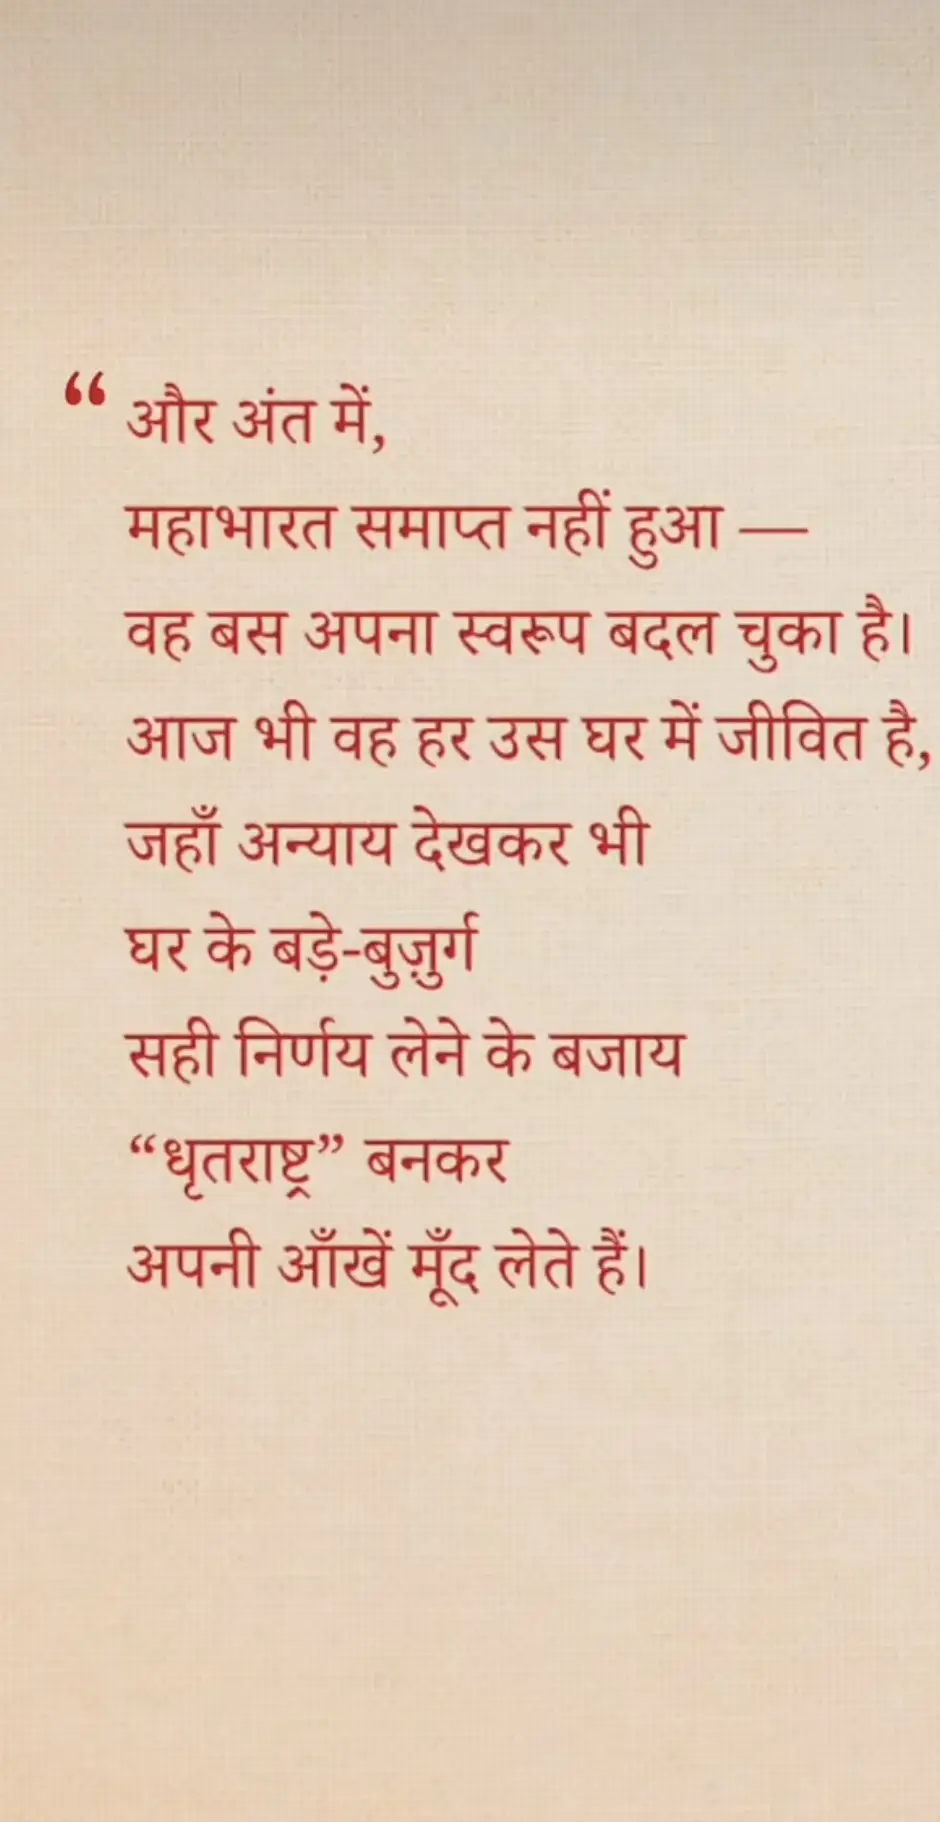 “ और अंत में,
महाभारत समाप्त नहीं हुआ —
वह बस अपना स्वरूप बदल चुका है।
आज भी वह हर उस घर में जीवित है,
जहाँ अन्याय देखकर भी
घर के बड़े-बुज़ुर्ग
सही निर्णय लेने के बजाय
“धृतराष्ट्र” बनकर
अपनी आँखें मूँद लेते हैं।